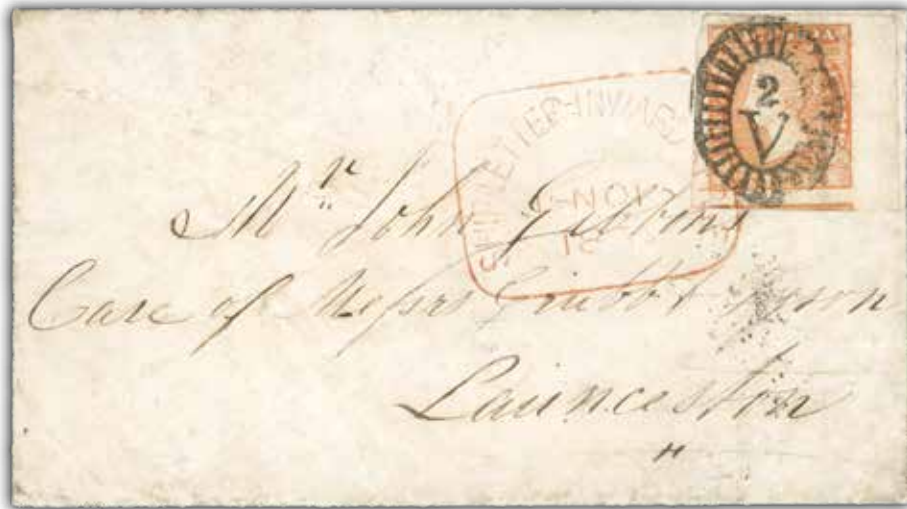 2
V
SHIP LETTER INWARDS
NOV
Mr. John Gibbons
Care of Messrs Grubb &
Launceston